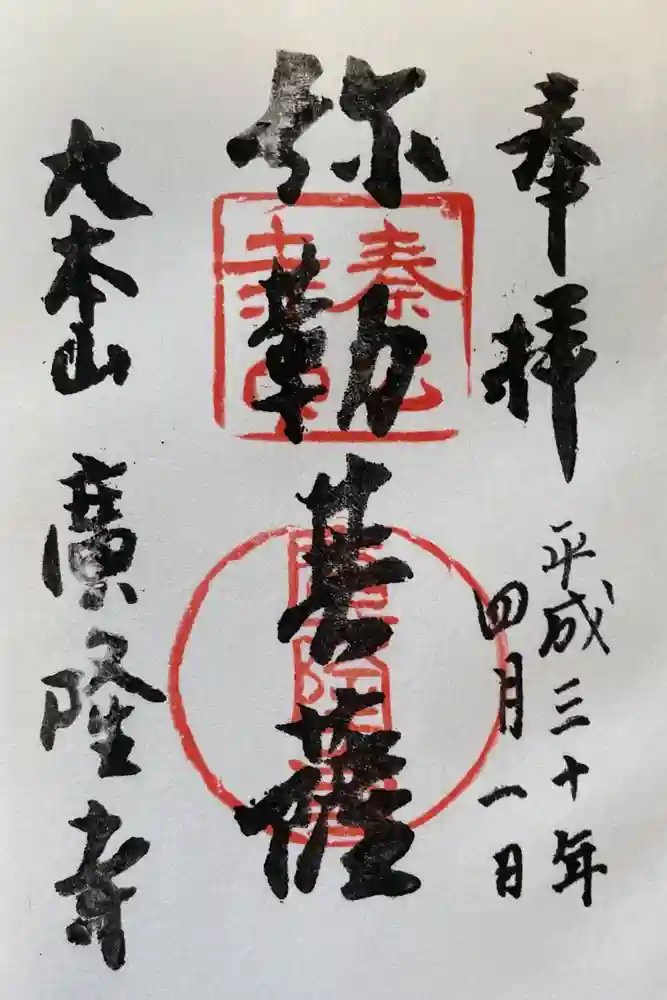 奉拝
平成三十年
四月一日
弥勒菩薩
大本山 廣隆寺